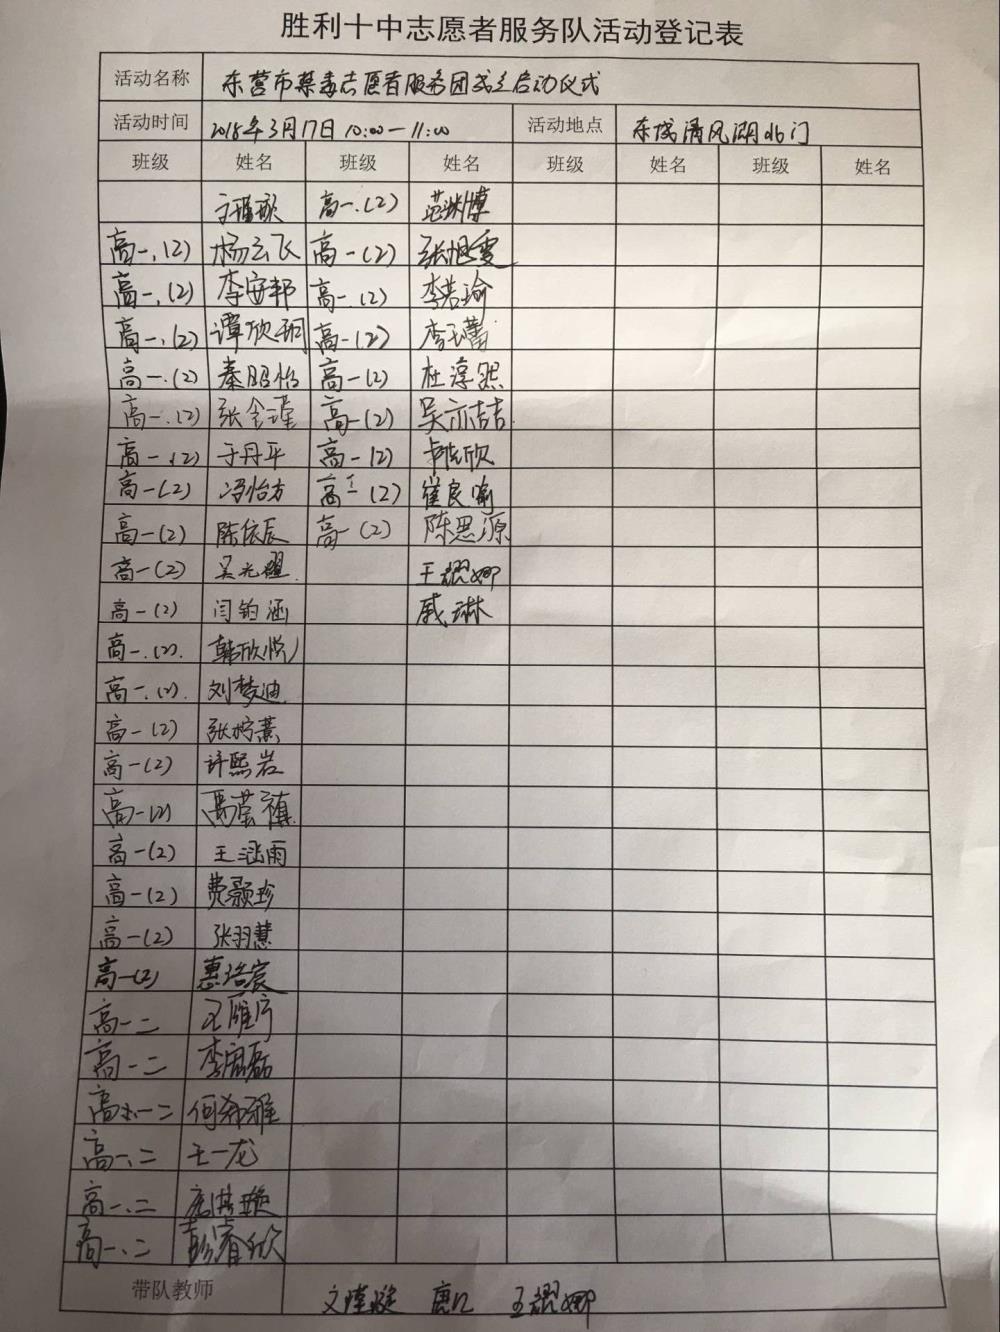 胜利十中志愿者服务队活动登记表
活动名称 东营市禁毒志愿者服务团成立启动仪式
活动时间 2018年3月17日 10:00—11:00 活动地点 东城清风湖北门
班级 姓名 班级 姓名 班级 姓名 班级 姓名
高一.(2)
高一.(2) 杨云飞 高一(2) 张旭雯
高一.(2) 李安邦 高一.(2) 李若瑜
高一.(2) 谭欣玥 高一(2) 李玉蕾
高一.(2) 秦昭怡 高一(2) 杜淳然
高一.(2) 张金瑾 高一(2) 吴亦喆
高一.(2) 于丹平 高一(2)
高一(2) 冯怡方 高一(2) 崔良喻
高一(2) 陈依辰 高一(2) 陈思源
高一(2) 吴光耀 王耀娜
高一(2) 闫铂涵 戚琳
高一.(2). 韩欣悦
高一.(2). 刘梦迪
高一(2) 张柠萱
高一(2) 许熙岩
高一(2)
高一(2) 王涵雨
高一(2) 费颢珍
高一(2) 张羽慧
高一(2) 惠浩宸
高一二 王雁序
高一二
高一二 何希雅
高一、二 王一龙
高一、二
高一、二 彭睿欣
带队教师 王耀娜